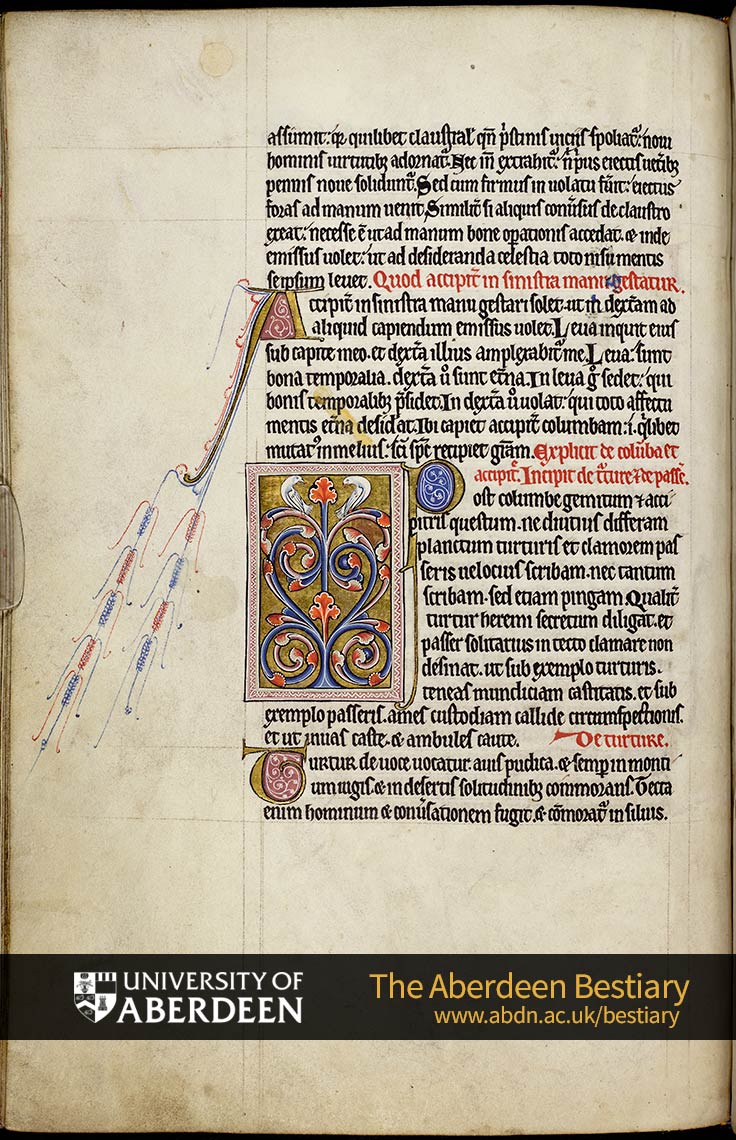 assumit: qr quilibet claustral' qn pristinis uiciis spoliat: noui
hominis uirtutib; adornat. Nec in extrahit: n prius eiectis uetib;
pennis noue solidunt. Sed cum firmus in uolatu fuit: eiectus
foras ad manum uenit. Similit si aliquis conuersus de claustro
exeat: necesse e ut ad manum bone operationis accedat. & inde
emissus uolet: ut ad desideranda celestia toto nisu mentis
seipsum leuet. Quod accipit in sinistra manu gestatur.
Accipit in sinistra manu gestari solet. ut in dextam ad
aliquid capiendum emissus uolet. Leua inquit eius
sub capite meo. et dexta illius amplexabit me. Leua: sunt
bona temporalia. dexta u sunt etna. In leua g sedet: qui
bonis temporalib; psidet. In dexta u uolat: qui toto affectu
mentis etna desidat. Ibi capiet accipit columbam: i. qlibet
mutat in melius: sci spe recipiet gram. Explicit de coluba et
accipit. Incipit de tture & de passe.
Post columbe gemitum & acci
pitris questum. ne diutius differam
planctum turturis et clamorem pas
seris uelocius scribam. nec tantum
scribam. sed etiam pingam. Qualit
turtur heremi secretum diligat. et
passer solitarius in tecto clamare non
desinat. ut sub exemplo turturis.
teneas mundiciam castitatis. et sub
exemplo passeris. ames custodiam callide circumspectionis.
et ut uiuas caste. & ambules caute. De turture.
Turtur de uoce uocatur. auis pudica. & semp in monti
um iugis. & in desertis solitudinib; commorans. Tecta
enim hominum & conusationem fugit. & comorat in siluis.
UNIVERSITY OF
ABERDEEN
The Aberdeen Bestiary
www.abdn.ac.uk/bestiary